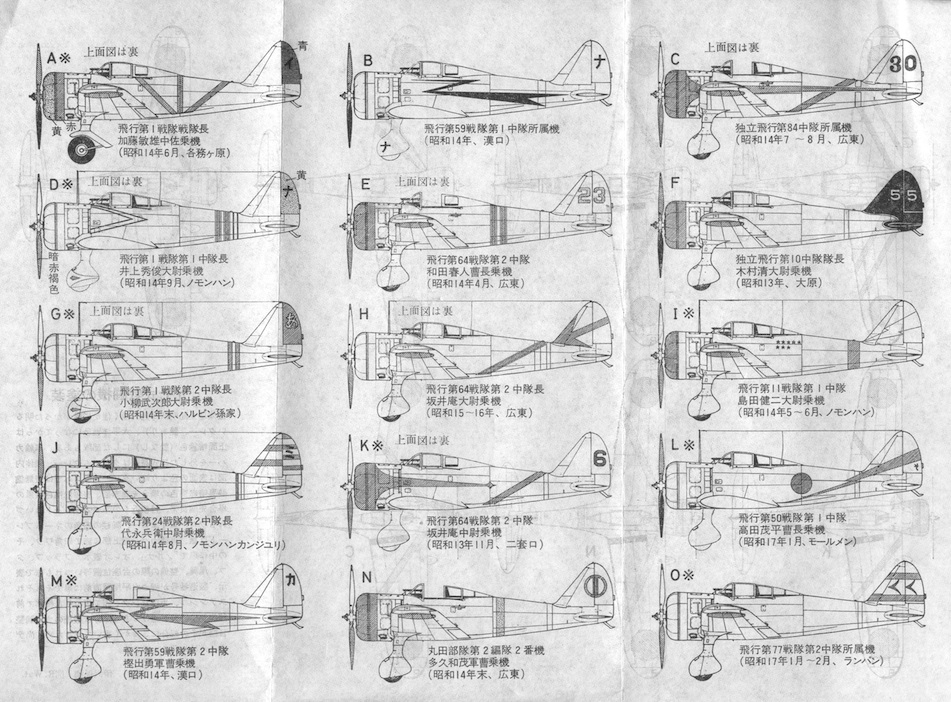 A※ 上面図は裏
青
イ
黄 赤
飛行第1戦隊戦隊長
加藤敏雄中佐乗機
(昭和14年6月、各務ヶ原)
B
ナ
ナ
飛行第59戦隊第1中隊所属機
(昭和14年、漢口)
C 上面図は裏
30
独立飛行第84中隊所属機
(昭和14年7~8月、広東)
D※ 上面図は裏
黄
ナ
暗赤褐色
飛行第1戦隊第1中隊長
井上秀俊大尉乗機
(昭和14年9月、ノモンハン)
E 上面図は裏
23
飛行第64戦隊第2中隊
和田春人曹長乗機
(昭和14年4月、広東)
F
55
独立飛行第10中隊隊長
木村清大尉乗機
(昭和13年、大原)
G※ 上面図は裏
あ
飛行第1戦隊第2中隊長
小柳武次郎大尉乗機
(昭和14年末、ハルビン孫家)
H 上面図は裏
飛行第64戦隊第2中隊長
坂井庵大尉乗機
(昭和15~16年、広東)
I※
飛行第11戦隊第1中隊
島田健二大尉乗機
(昭和14年5~6月、ノモンハン)
J
飛行第24戦隊第2中隊長
代永兵衛中尉乗機
(昭和14年8月、ノモンハンカンジュリ)
K※ 上面図は裏
6
飛行第64戦隊第2中隊
坂井庵中尉乗機
(昭和13年11月、二套口)
L※
そ
飛行第50戦隊第1中隊
高田茂平曹長乗機
(昭和17年1月、モールメン)
M※ 上面図は裏
カ
飛行第59戦隊第2中隊
樫出勇軍曹乗機
(昭和14年、漢口)
N
丸田部隊第2編隊2番機
多久和茂軍曹乗機
(昭和14年末、広東)
O※
飛行第77戦隊第2中隊所属機
(昭和17年1月~2月、ランパン)